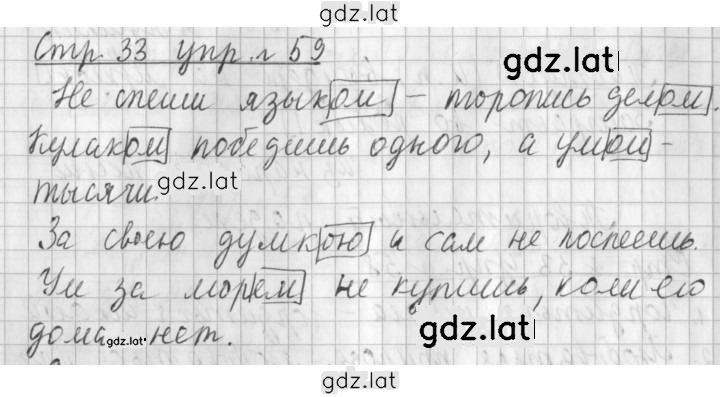 gdz.lat
Стр. 33 упр. 59
gdz.lat
Не спеши языком – торопись делом.
Кулаком победишь одного, а умом –
gdz.lat
тысячи.
За своею думкою и сам не поспеешь.
Ум за морем не купишь, коли его
gdz.lat
дома нет.
gdz.lat
gdz.lat